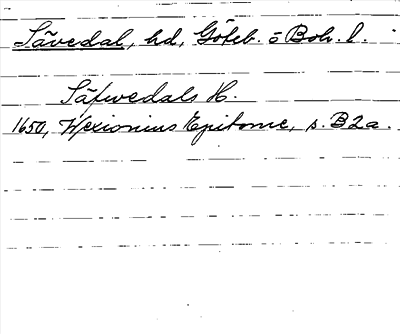 Sävedal, hd, Göteb. o Boh. l.
Säfwedals H.
1650, Wexionius Epitome, s. B2a.